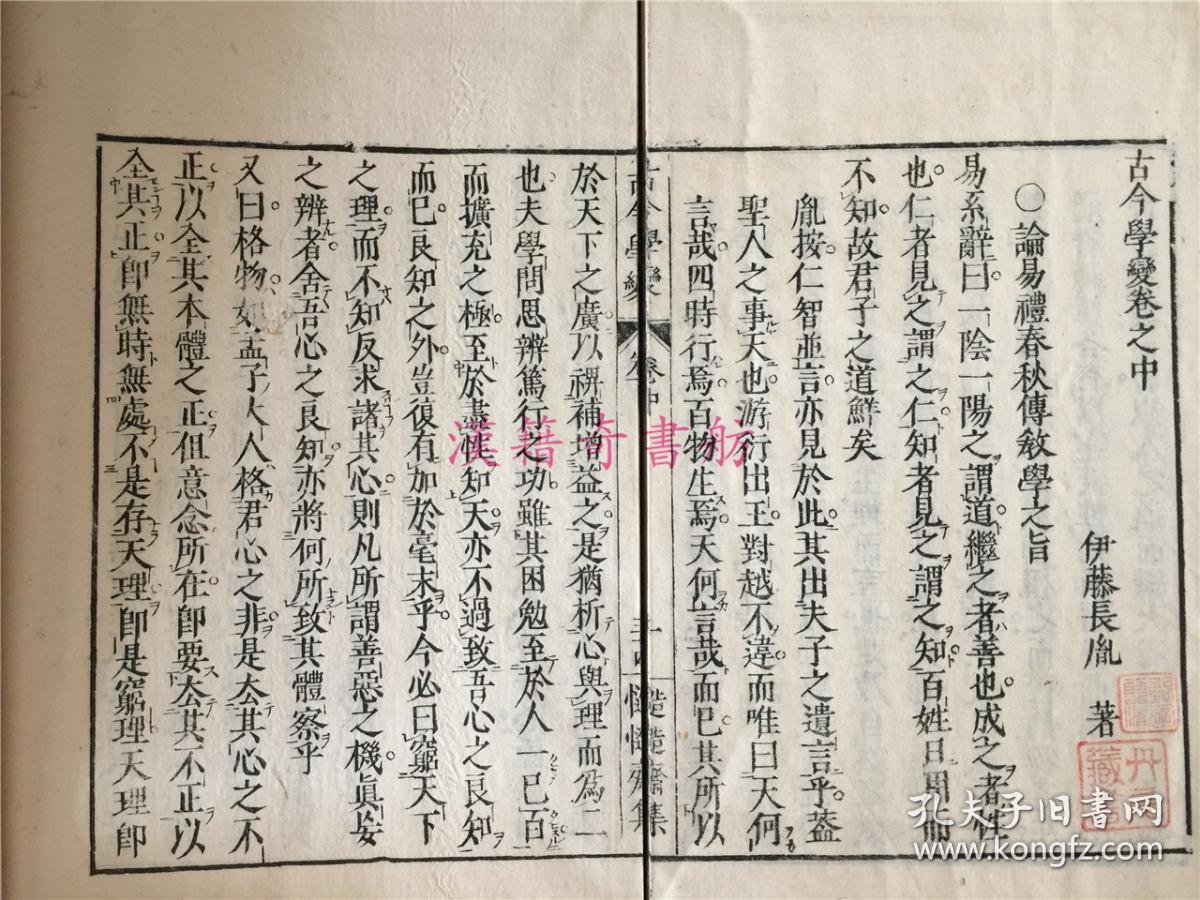 古今學變卷之中
伊藤長胤 著
〇論易禮春秋傳敘學之旨
易系辭曰一陰一陽之謂道繼之者善也成之者性
也仁者見之謂之仁知者見之謂之知百姓日用而
不知故君子之道鮮矣
胤按仁智並言亦見於此其出夫子之遺言乎葢
聖人之事天也游衍出王對越不違而唯曰天何
言哉四時行焉百物生焉天何言哉而已其所以
古今學變
卷中
慥慥齋集
於天下之廣以裨補增益之是猶析心與理而爲二
也夫學問思辨篤行之功雖其困勉至於人一己百
而擴充之極至於盡性知天亦不過致吾心之良知
而已良知之外豈復有加於毫末乎今必曰窮天下
之理而不知反求諸其心則凡所謂善惡之機眞妄
之辨者舍吾心之良知亦將何所致其體察乎
又曰格物如孟子大人格君心之非是去其心之不
正以全其本體之正但意念所在卽要去其不正以
全其正卽無時無處不是存天理卽是窮理天理卽
漢籍奇書舫
孔夫子旧书网
kongfz.com